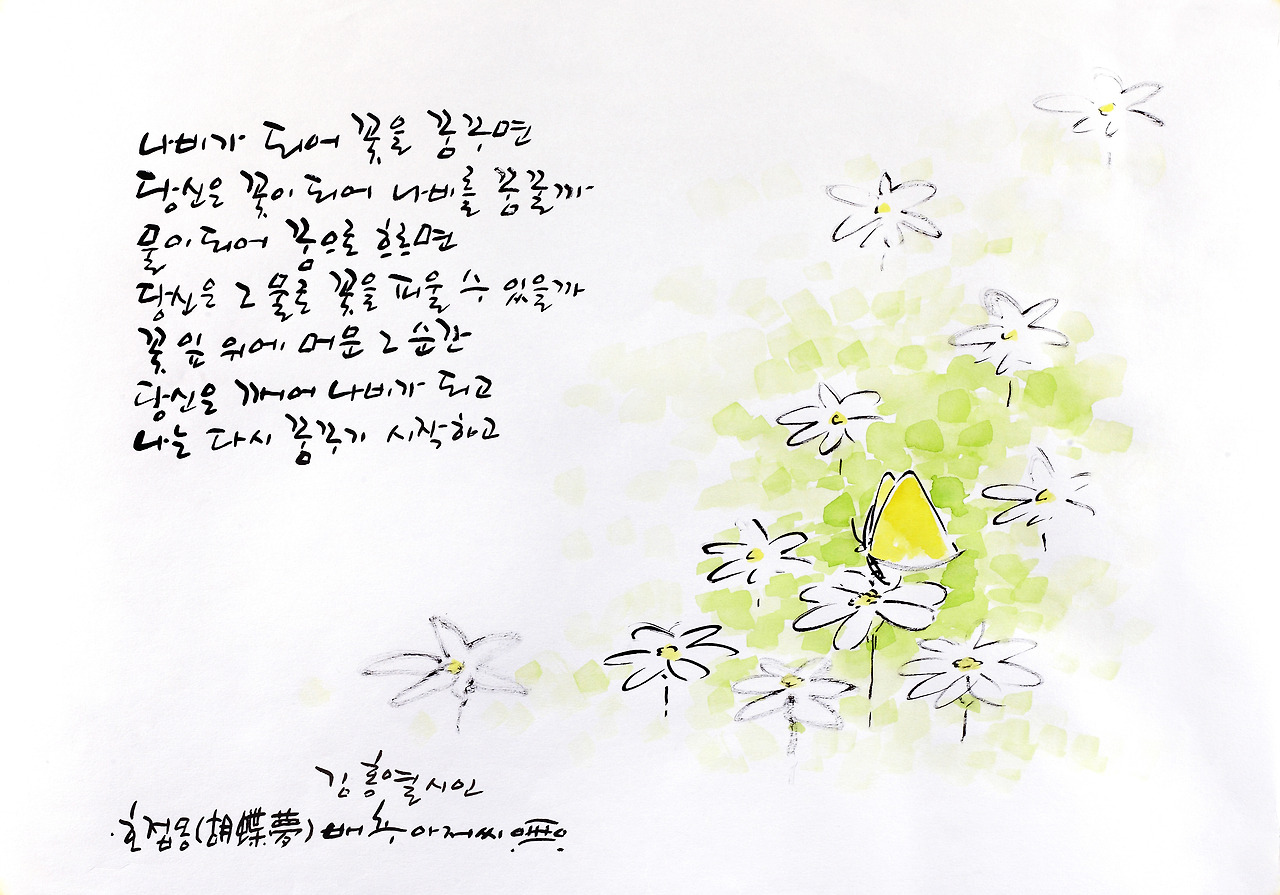 나비가 되어 꽃을 꿈꾸면
당신은 꽃이 되어 나비를 꿈꿀까
물이 되어 꿈으로 흐르면
당신은 그 물로 꽃을 피울 수 있을까
꽃잎 위에 머문 그 순간
당신은 깨어 나비가 되고
나는 다시 꿈꾸기 시작하고
김홍열 시인
호접몽(胡蝶夢) 배추아저씨